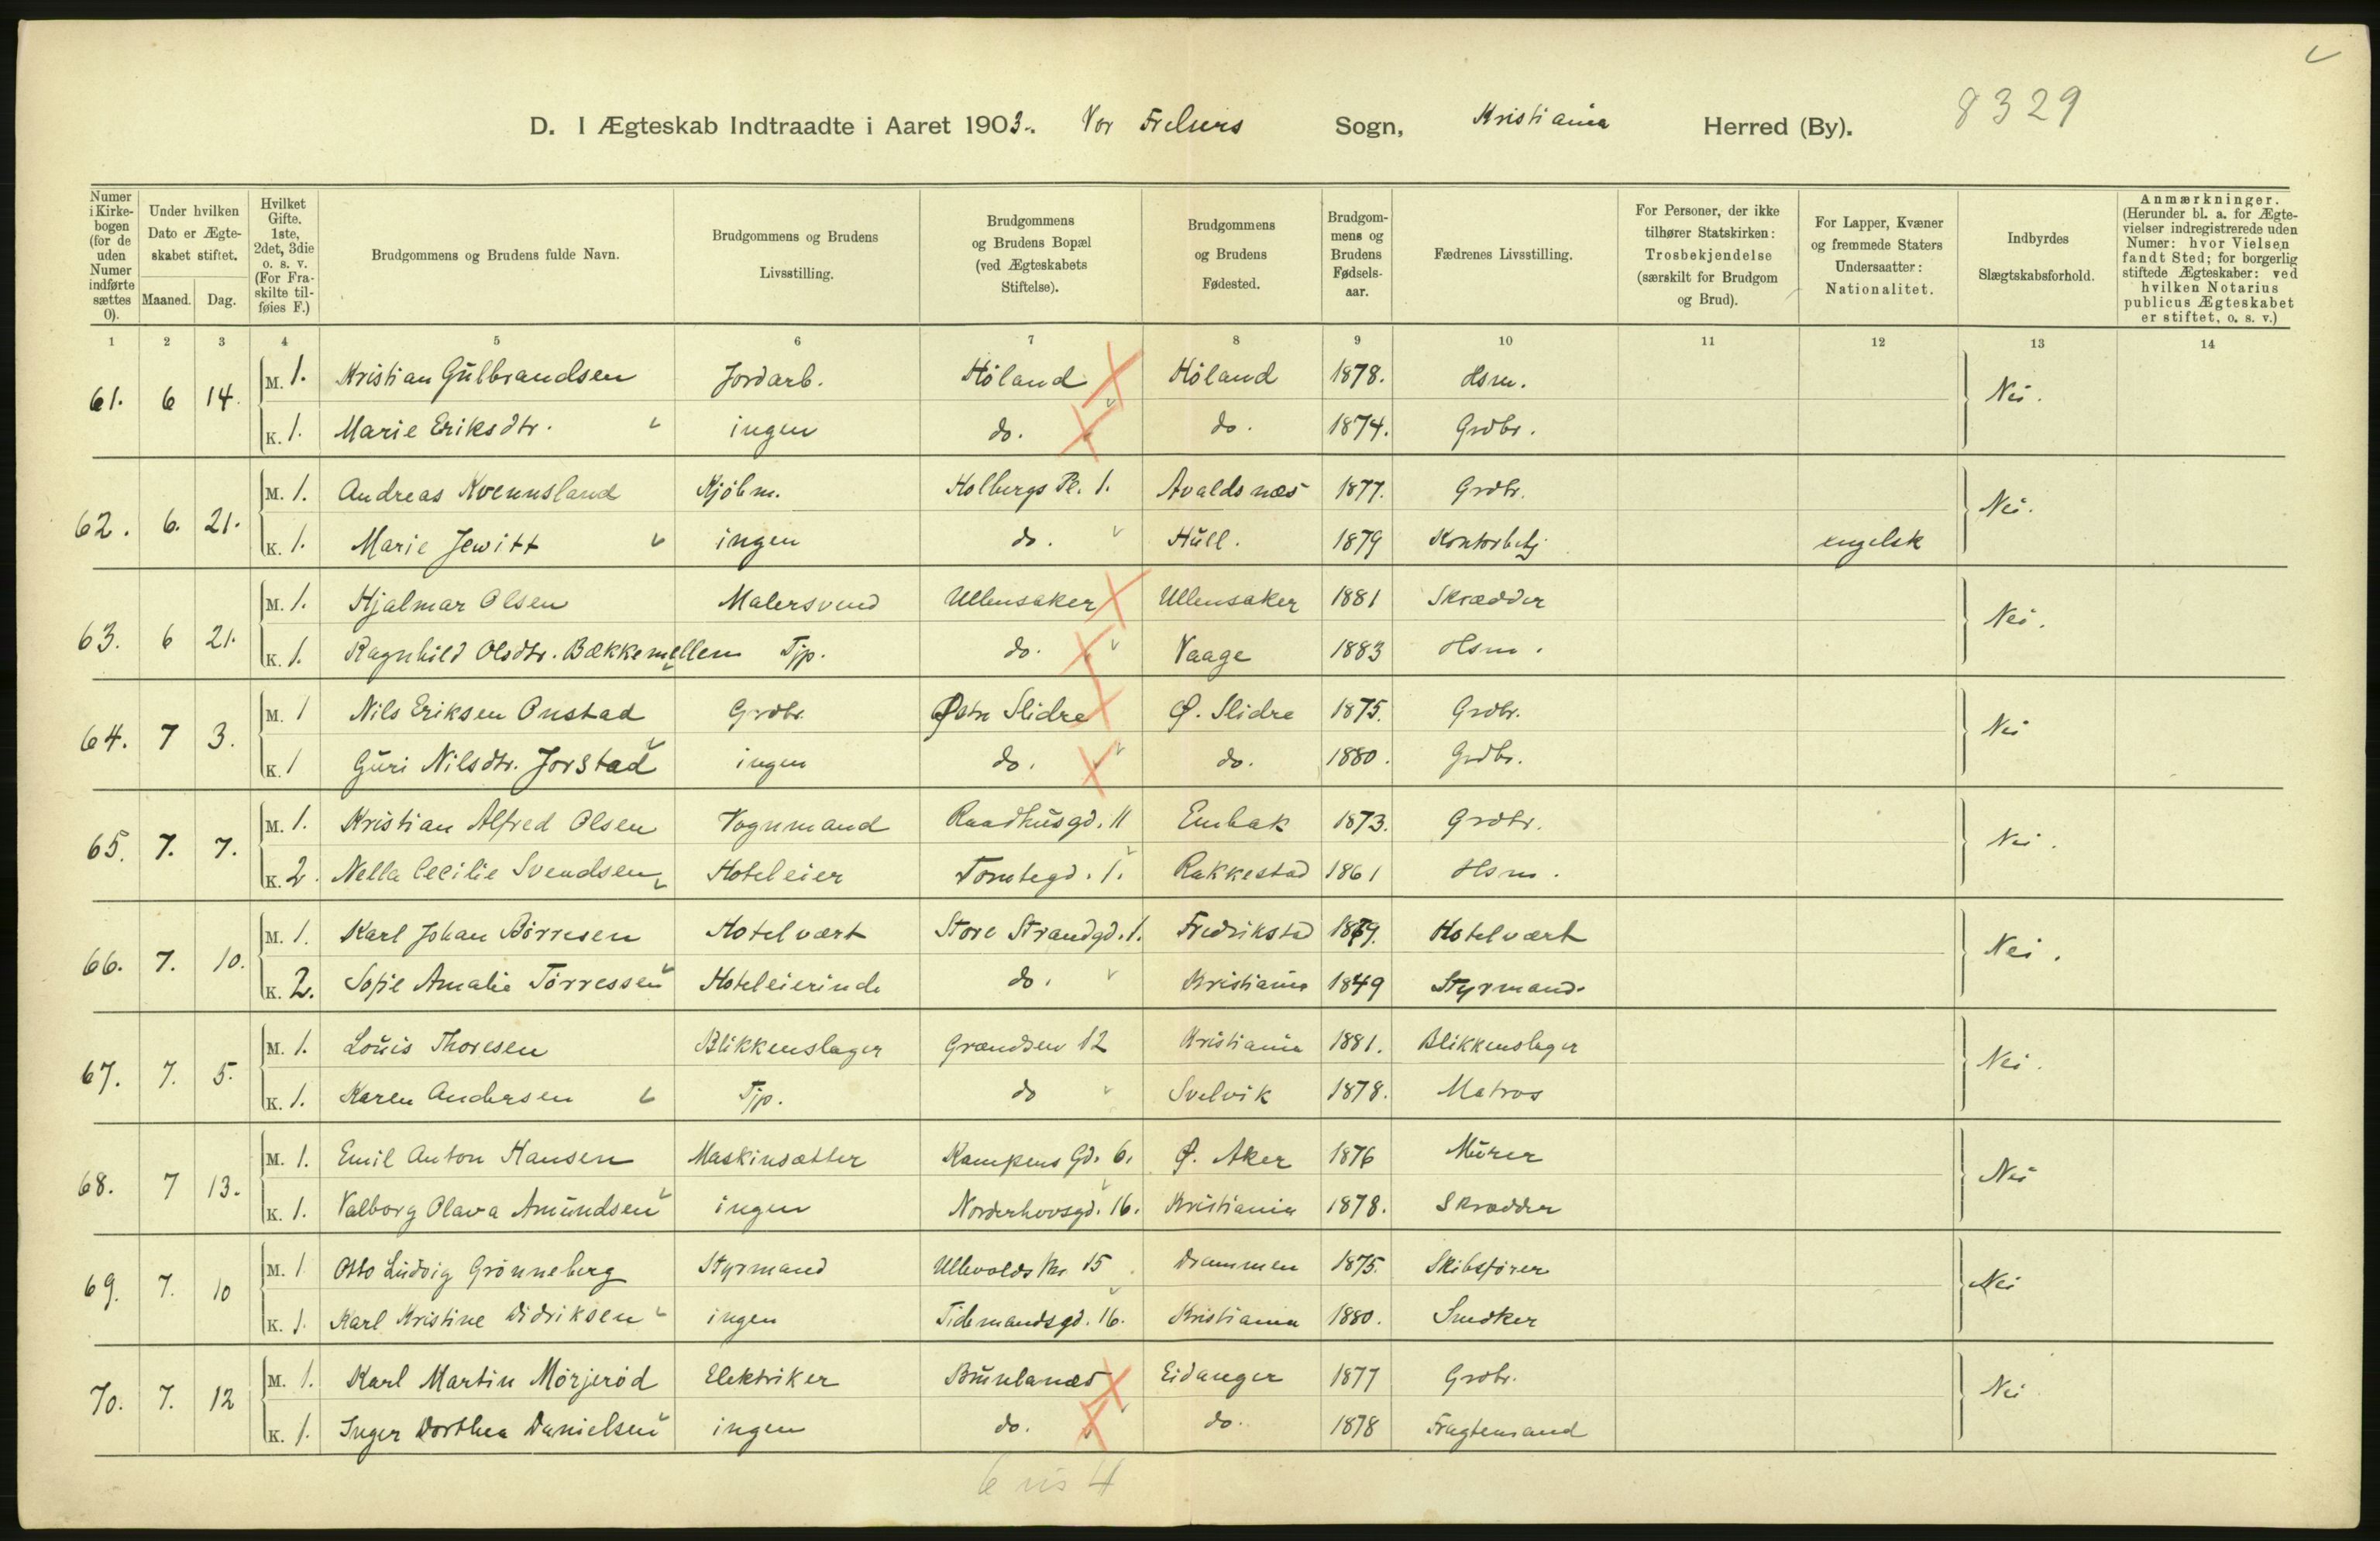 D. I Ægteskab Indtraadte i Aaret 1903. Vor Frelsers Sogn, Kristiania Herred (By). 8329
Numer i Kirkebogen (for de uden Numer indførte sættes 0).
Under hvilken Dato er Ægteskabet stiftet. Maaned. Dag.
Hvilket Gifte. 1ste, 2det, 3die o. s. v. (For Fraskilte tilføies F.)
Brudgommens og Brudens fulde Navn.
Brudgommens og Brudens Livsstilling.
Brudgommens og Brudens Bopæl (ved Ægteskabets Stiftelse).
Brudgommens og Brudens Fødested.
Brudgommens og Brudens Fødselsaar.
Fædrenes Livsstilling.
For Personer, der ikke tilhører Statskirken: Trosbekjendelse (særskilt for Brudgom og Brud).
For Lapper, Kvæner og fremmede Staters Undersaatter: Nationalitet.
Indbyrdes Slægtskabsforhold.
Anmærkninger. (Herunder bl. a. for Ægtevielser indregistrerede uden Numer: hvor Vielsen fandt Sted; for borgerlig stiftede Ægteskaber: ved hvilken Notarius publicus Ægteskabet er stiftet, o. s. v.)
1 2 3 4 5 6 7 8 9 10 11 12 13 14
61. 6 14. M. 1. Kristian Gulbrandsen Jordarb. Höland Höland 1878. Hsm. Nei.
K. 1. Marie Eriksdtr. ingen do. do. 1874. Grdbr.
62. 6. 21. M. 1. Andreas Kvennsland Kjöbm. Holbergs Pl. 1. Avaldsnæs 1877. Grdbr. Nei.
K. 1. Marie Jewitt ingen do. Hull. 1879 Kontorbetj engelsk
63. 6 21. M. 1. Hjalmar Olsen Malersvend Ullensaker Ullensaker 1881 Skrædder Nei.
K. 1. Ragnhild Olsdtr. Bækkemellem Tjp. do. Vaage 1883 Hsm.
64. 7 3. M. 1 Nils Eriksen Onstad Grdbr. Østre Slidre Ø. Slidre 1875. Grdbr. Nei
K. 1 Guri Nilsdtr. Jorstad ingen do. do. 1880. Grdbr.
65. 7. 7. M. 1. Kristian Alfred Olsen Vognmand Raadhusgd. 11 Enebak 1873. Grdbr. Nei.
K. 2. Nella Cecilie Svendsen Hoteleier Tomtegd. 1. Rakkestad 1861 Hsm.
66. 7. 10. M. 1. Karl Johan Börresen Hotelvært Store Strandgd. 1. Fredrikstad 1869. Hotelvært Nei.
K. 2. Sofie Amalie Törressen Hoteleierinde do. Kristiania 1849 Styrmand.
67. 7. 5. M. 1. Louis Thoresen Blikkenslager Grændsen 12 Kristiania 1881. Blikkenslager Nei.
K. 1. Karen Andersen Tjp. do Svelvik 1878. Matros
68. 7 13. M. 1. Emil Anton Hansen Maskinsætter Kampens Gd. 6. Ø. Aker 1876 Murer Nei
K. 1. Valborg Olava Amundsen ingen Norderhovsgd. 16. Kristiania 1878. Skrædder
69. 7. 10 M. 1 Otto Ludvig Grönneberg Styrmand Ullevolds 15 Drammen 1875. Skibsförer Nei
K. 1. Karl Kristine Didriksen ingen Tidemandsgd. 16. Kristiania 1880. Snedker
70. 7. 12 M. 1. Karl Martin Mörjeröd Elektriker Brunlanæs Eidanger 1877 Grdbr. Nei
K. 1. Inger Dorthea Danielsen ingen do. do. 1878 Fragtemand